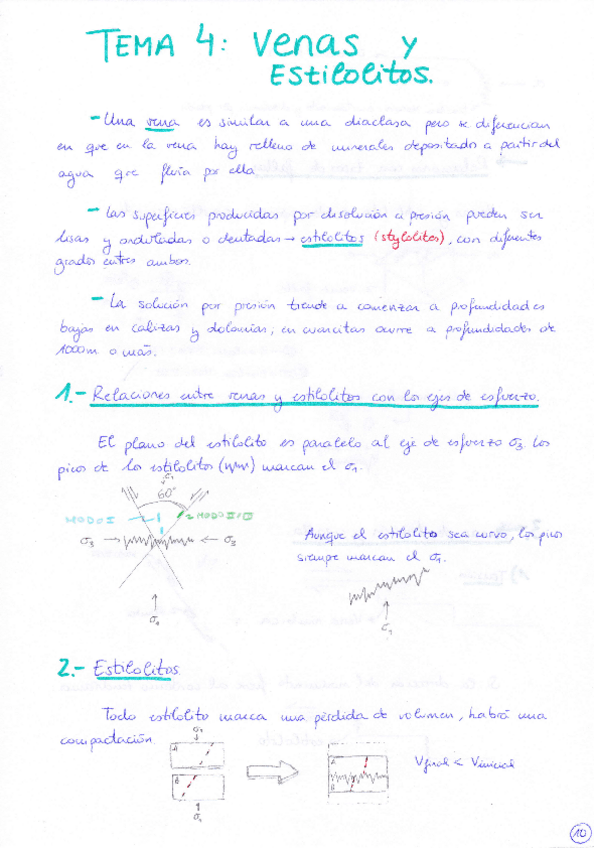 TEMA 4: Venas y
Estilolitos.
- Una vena es similar a una diaclasa pero se diferencian
en que en la vena hay relleno de minerales depositado a partir del
agua que fluía por ella
- Las superficies producidas por disolución a presión pueden ser
lisas y onduladas o dentadas → estilolitos (stylolites), con diferentes
grados entres ambos.
- La solución por presión tiende a comenzar a profundidades
bajas en calizas y dolomías; en cuarcitas ocurre a profundidades de
1000m o más.
1.- Relaciones entre venas y estilolitos con los ejes de esfuerzo.
El plano del estilolito es paralelo al eje de esfuerzo σ3. Los
picos de los estilolitos ( ) marcan el σ1.
σ1
60°
MODO I
MODO II/III
σ3 → ← σ3
↑
σ1
Aunque el estilolito sea curvo, los picos
siempre marcan el σ1.
↑
σ1
2.- Estilolitos.
Todo estilolito marca una pérdida de volumen, habrá una
compactación.
σ1
↓
A
B
↑
σ1
A
B
Vfinal < Vinicial
10